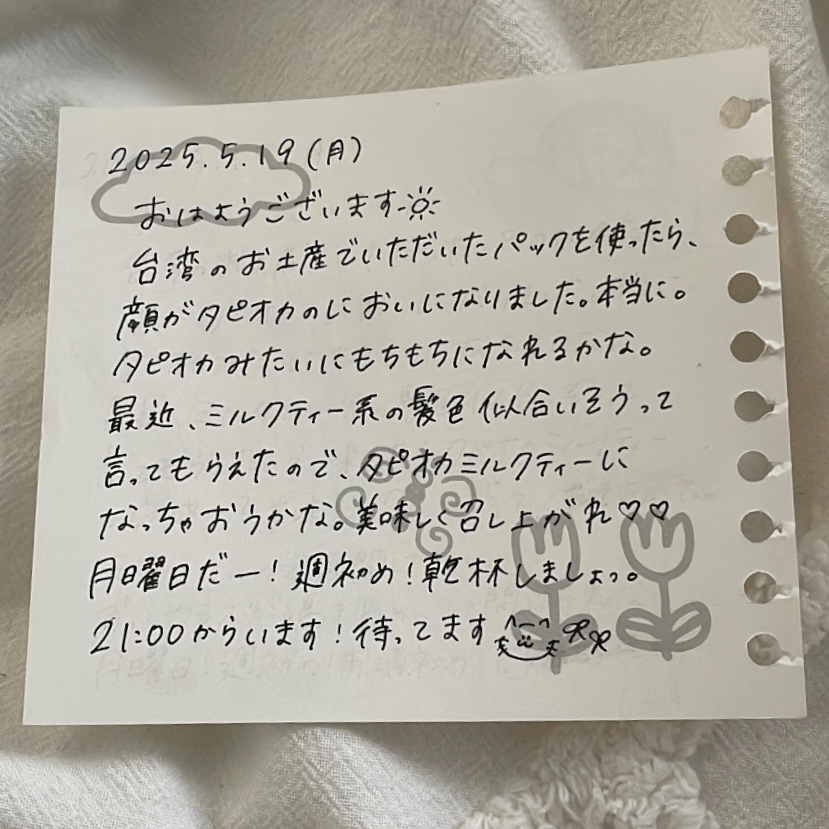 2025.5.19(月)
おはようございます
台湾のお土産でいただいたパックを使ったら、
顔がタピオカのにおいになりました。本当に。
タピオカみたいにもちもちになれるかな。
最近、ミルクティー系の髪色似合いそうって
言ってもらえたので、タピオカミルクティーに
なっちゃおうかな。美味しく召し上がれ♡♡
月曜日だー!週初め!乾杯しましょっ。
21:00からいます!待ってます